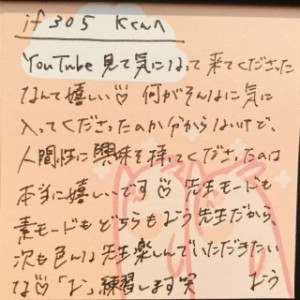 if 305 Kくんへ
YouTube 見て気になって来てくださった
なんて嬉しい♡ 何がそんなに気に
入ってくださったのか分からないけど、
人間性に興味を持ってくださったのは
本当に嬉しいです♡ 先生モードも
素モードもどちらもよう先生だから、
次も色んな先生楽しんでいただきたい
な♡「よ」練習します笑 よう